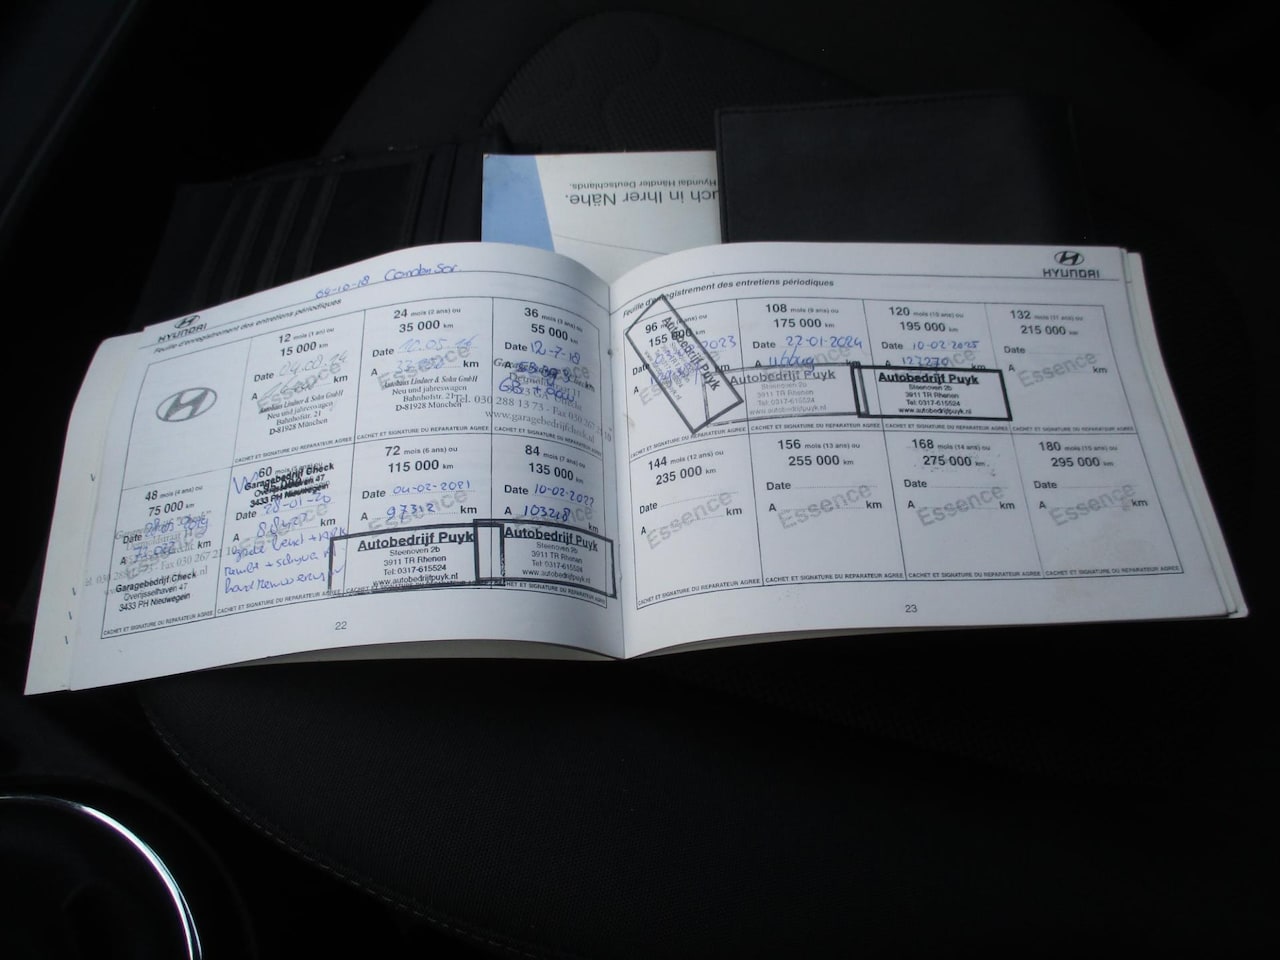 uch in Ihrer Nähe.
Hyundai Händler Deutschlands.
04-10-18 Condensor
HYUNDAI
Feuille d'enregistrement des entretiens périodiques
12 mois (1 an) ou
15 000 km
Date
A km
Essence
Autohaus Lindner & Sohn GmbH
Neu und jahreswagen
Bahnhofstr. 21
D-81928 München
CACHET ET SIGNATURE DU REPARATEUR AGREE
24 mois (2 ans) ou
35 000 km
Date
A km
Essence
Autohaus Lindner & Sohn GmbH
Neu und jahreswagen
Bahnhofstr. 21
D-81928 München
CACHET ET SIGNATURE DU REPARATEUR AGREE
36 mois (3 ans) ou
55 000 km
Date 12-7-18
A
Tel. 030 288 13 73 - Fax 030 267
www.garagebedrijfcheck.nl
CACHET ET SIGNATURE DU REPARATEUR AGREE
48 mois (4 ans) ou
75 000 km
Date
A km
Fax 030 267 21 10
Garagebedrijf Check
Overijsselhaven 47
3433 PH Nieuwegein
CACHET ET SIGNATURE DU REPARATEUR AGREE
60
Garagebedrijf Check
Overijsselhaven 47
3433 PH Nieuwegein
Date 28-01-20
A km
CACHET ET SIGNATURE DU REPARATEUR AGREE
72 mois (6 ans) ou
115 000 km
Date 04-02-2021
A 97312 km
Essence
Autobedrijf Puyk
Steenoven 2b
3911 TR Rhenen
Tel: 0317-615524
www.autobedrijfpuyk.nl
CACHET ET SIGNATURE DU REPARATEUR AGREE
84 mois (7 ans) ou
135 000 km
Date 10-02-2022
A 103218 km
Essence
Autobedrijf Puyk
Steenoven 2b
3911 TR Rhenen
Tel: 0317-615524
www.autobedrijfpuyk.nl
CACHET ET SIGNATURE DU REPARATEUR AGREE
22
HYUNDAI
Feuille d'enregistrement des entretiens périodiques
96 mois (8 ans) ou
155 000 km
2023
A
Autobedrijf Puyk
CACHET ET SIGNATURE DU REPARATEUR AGREE
108 mois (9 ans) ou
175 000 km
Date 22-01-2024
A km
Autobedrijf Puyk
Steenoven 2b
3911 TR Rhenen
Tel: 0317-615524
www.autobedrijfpuyk.nl
CACHET ET SIGNATURE DU REPARATEUR AGREE
120 mois (10 ans) ou
195 000 km
Date 10-02-2025
A km
Autobedrijf Puyk
Steenoven 2b
3911 TR Rhenen
Tel: 0317-615524
www.autobedrijfpuyk.nl
CACHET ET SIGNATURE DU REPARATEUR AGREE
132 mois (11 ans) ou
215 000 km
Date
A km
Essence
CACHET ET SIGNATURE DU REPARATEUR AGREE
144 mois (12 ans) ou
235 000 km
Date
A km
Essence
CACHET ET SIGNATURE DU REPARATEUR AGREE
156 mois (13 ans) ou
255 000 km
Date
A km
Essence
CACHET ET SIGNATURE DU REPARATEUR AGREE
168 mois (14 ans) ou
275 000 km
Date
A km
Essence
CACHET ET SIGNATURE DU REPARATEUR AGREE
180 mois (15 ans) ou
295 000 km
Date
A km
Essence
CACHET ET SIGNATURE DU REPARATEUR AGREE
23